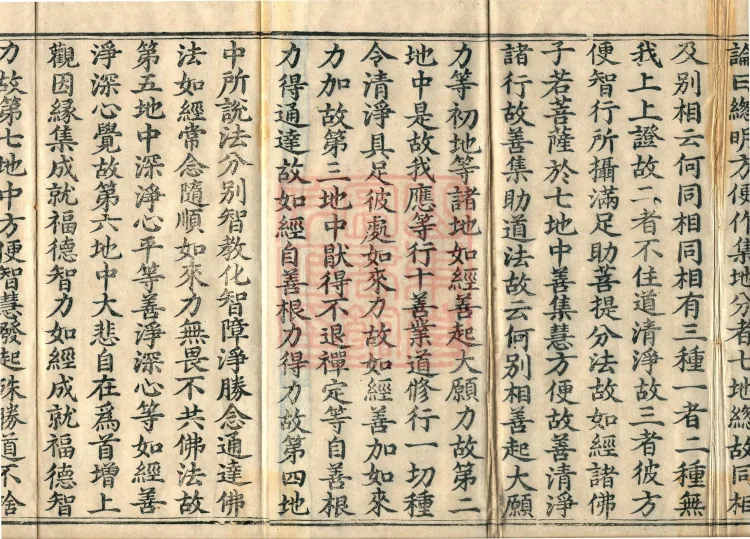 論曰總明方便作集地分者七地總故同相
及別相云何同相同相有三種一者二種無
我上上證故二者不住道清淨故三者彼方
便智行所攝滿足助菩提分法故如經諸佛
子若菩薩於七地中善集慧方便故善清淨
諸行故善集助道法故云何別相善起大願
力等初地等諸地如經善起大願力故第二
地中是故我應等行十善業道修行一切種
令清淨具足彼處如來力故如經善加如來
力加故第三地中猒得不退禪定等自善根
力得通達故如經自善根力得力故第四地
中所說法分別智教化智障淨勝念通達佛
法如經常念隨順如來力無畏不共佛法故
第五地中深淨心平等善淨深心等如經善
淨深心覺故第六地中大悲自在爲首增上
觀因緣集成就福德智力如經成就福德智
力故第七地中方便智慧發起殊勝道不捨